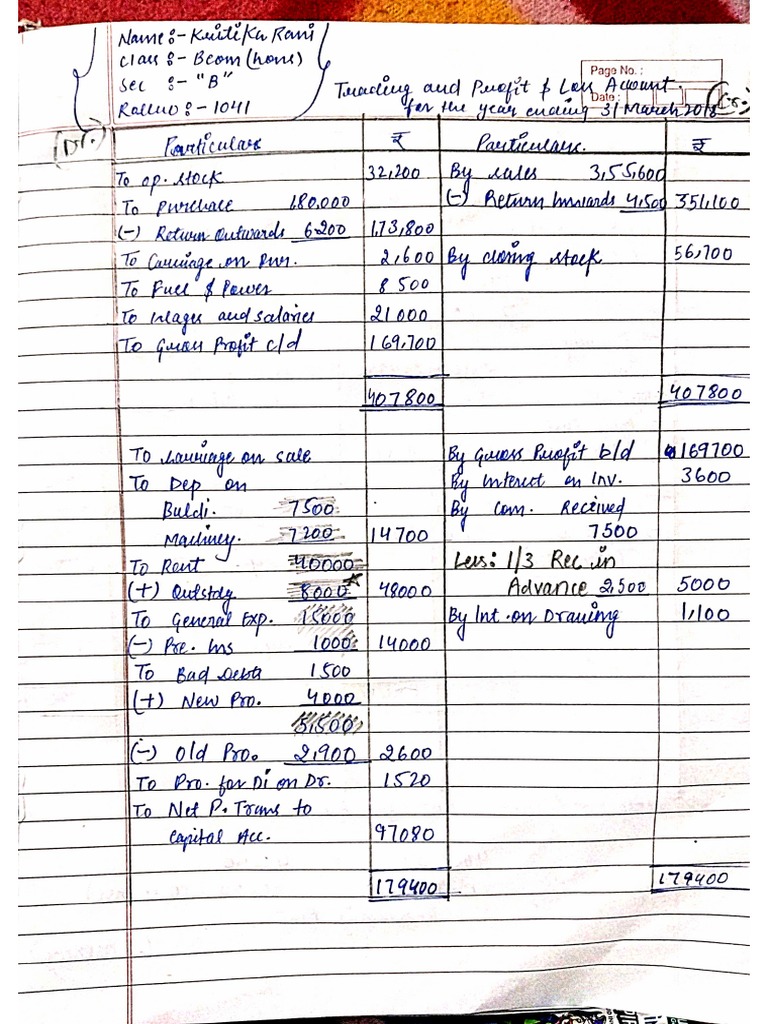 Name:- Kritika Rani
Class:- Bcom (hons)
Sec :- "B"
Rollno:- 1041
Page No.:
Date:
Trading and Profit & Loss Account.
for the year ending 31 March 2018
(Dr.) (Cr.)
Particulars ₹ Particulars. ₹
To op. stock 32,200 By sales 3,55,600
To purchase 1,80,000 (-) Return Inwards 4,500 351,100
(-) Return Outwards 6200 1,73,800
To Carriage on pur. 2,600 By closing stock 56,700
To Fuel & Power 8500
To wages and salaries 21000
To Gross Profit c/d 169,700
407800 407800
To Carriage on sale By Gross Profit b/d 169700
To Dep on By Interest on Inv. 3600
Buldi. 7500 By Com. Received
Machiney. 7200 14700 7500
To Rent 40000 Less: 1/3 Rec in
(+) Outstdg 8000 48000 Advance 2,500 5000
To General Exp. 15000 By Int. on Drawing 1,100
(-) Pre. Ins 1000 14000
To Bad Debts 1500
(+) New Pro. 4000
5,500
(-) Old Pro. 2,900 2600
To Pro. for Di on Dr. 1520
To Net P. Trans to
Capital Acc. 97080
179400 179400